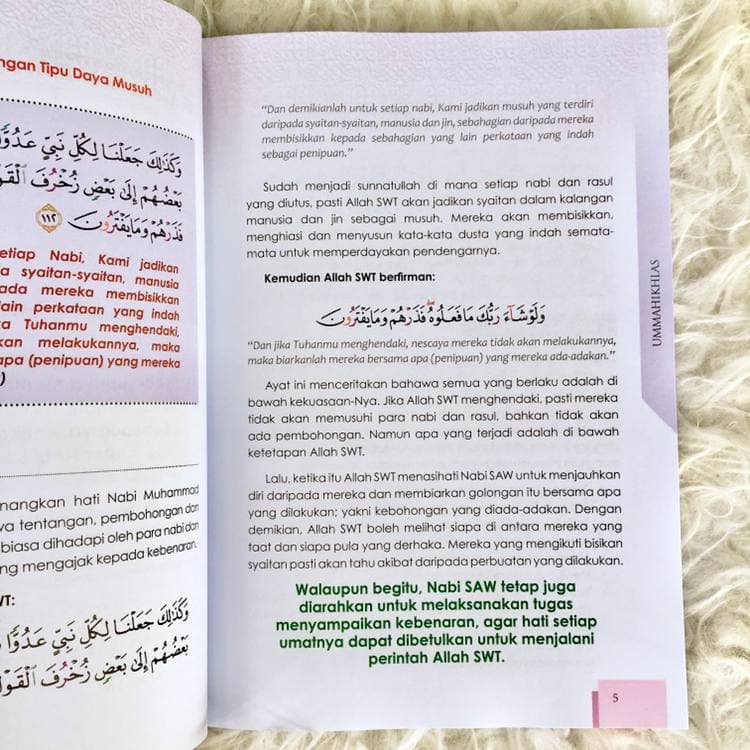 ngan Tipu Daya Musuh
وَكَذَٰلِكَ جَعَلْنَا لِكُلِّ نَبِيٍّ عَدُوًّا
بَعْضُهُمْ إِلَىٰ بَعْضٍ زُخْرُفَ ٱلْقَوْ
فَذَرْهُمْ وَمَا يَفْتَرُونَ ١١٢
etiap Nabi, Kami jadikan
a syaitan-syaitan, manusia
pada mereka membisikkan
lain perkataan yang indah
ka Tuhanmu menghendaki,
kan melakukannya, maka
apa (penipuan) yang mereka
)
nangkan hati Nabi Muhammad
va tentangan, pembohongan dan
biasa dihadapi oleh para nabi dan
ng mengajak kepada kebenaran.
WT:
وَكَذَٰلِكَ جَعَلْنَا لِكُلِّ نَبِيٍّ عَدُوًّا
بَعْضُهُمْ إِلَىٰ بَعْضٍ زُخْرُفَ ٱلْقَوْ
“Dan demikianlah untuk setiap nabi, Kami jadikan musuh yang terdiri
daripada syaitan-syaitan, manusia dan jin, sebahagian daripada mereka
membisikkan kepada sebahagian yang lain perkataan yang indah
sebagai penipuan.”
Sudah menjadi sunnatullah di mana setiap nabi dan rasul
yang diutus, pasti Allah SWT akan jadikan syaitan dalam kalangan
manusia dan jin sebagai musuh. Mereka akan membisikan,
menghiasi dan menyusun kata-kata dusta yang indah semata-
mata untuk memperdayakan pendengarnya.
Kemudian Allah SWT berfirman:
وَلَوْ شَآءَ رَبُّكَ مَا فَعَلُوهُ ۖ فَذَرْهُمْ وَمَا يَفْتَرُونَ
“Dan jika Tuhanmu menghendaki, nescaya mereka tidak akan melakukannya,
maka biarkanlah mereka bersama apa (penipuan) yang mereka ada-adakan.”
Ayat ini menceritakan bahawa semua yang berlaku adalah di
bawah kekuasaan-Nya. Jika Allah SWT menghendaki, pasti mereka
tidak akan memusuhi para nabi dan rasul, bahkan tidak akan
ada pembohongan. Namun apa yang terjadi adalah di bawah
ketetapan Allah SWT.
Lalu, ketika itu Allah SWT menasihati Nabi SAW untuk menjauhkan
diri daripada mereka dan membiarkan golongan itu bersama apa
yang dilakukan; yakni kebohongan yang diada-adakan. Dengan
demikian, Allah SWT boleh melihat siapa di antara mereka yang
taat dan siapa pula yang derhaka. Mereka yang mengikuti bisikan
syaitan pasti akan tahu akibat daripada perbuatan yang dilakukan.
Walaupun begitu, Nabi SAW tetap juga
diarahkan untuk melaksanakan tugas
menyampaikan kebenaran, agar hati setiap
umatnya dapat dibetulkan untuk menjalani
perintah Allah SWT.
UMMAHIKHLAS
5